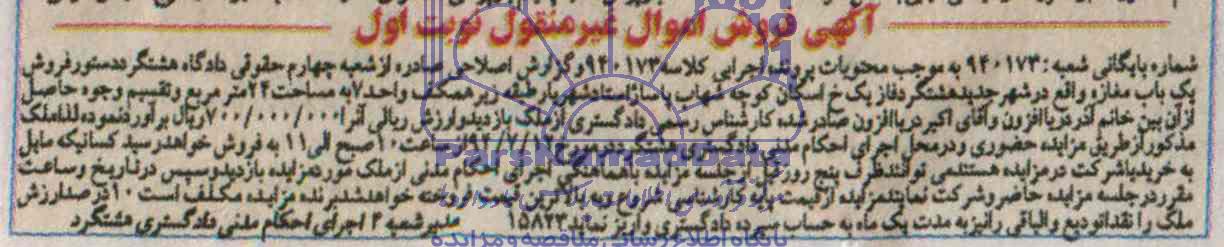 آگهی فروش اموال غیرمنقول نوبت اول
شماره بایگانی شعبه: ۹۴۰۱۷۳ به موجب محتویات پرونده اجرایی کلاسه ۹۴۰۱۷۳ و گزارش اصلاحی صادره از شعبه چهارم حقوقی دادگاه هشتگرد دستور فروش
یک باب مغازه واقع در شهر جدید هشتگرد فاز یک خ اسکان کوچه شهاب پاساژ استاد شهریار طبقه زیر همکف واحد ۷ به مساحت ۲۴ متر مربع و تقسیم وجوه حاصل
از آن بین خانم آذر دریا افزون و آقای اکبر دریا افزون صادر شده کارشناس رسمی دادگستری از ملک بازدید و ارزش ریالی آنرا ۷۰۰/۰۰۰/۰۰۰ ریال برآورد نموده لذا ملک
مذکور از طریق مزایده حضوری و در محل اجرای احکام مدنی دادگستری هشتگرد در مورخ از ساعت ۱۰ صبح الی ۱۱ به فروش خواهد رسید کسانیکه مایل
به خرید یا شرکت در مزایده هستند می توانند ظرف پنج روز قبل از جلسه مزایده با هماهنگی اجرای احکام مدنی از ملک مورد مزایده بازدید و سپس در تاریخ و ساعت
مقرر در جلسه مزایده حاضر و شرکت نمایند مزایده از قیمت پایه کارشناسی شروع و به بالاترین قیمت فروخته خواهد شد برنده مزایده مکلف است ۱۰ درصد ارزش
ملک را نقدا تودیع و الباقی را نیز به مدت یک ماه به حساب سپرده دادگستری واریز نماید ۱۵۸۲۳ مدیر شعبه ۲ اجرای احکام مدنی دادگستری هشتگرد
ParsNamadData
پایگاه اطلاع رسانی مناقصه و مزایده